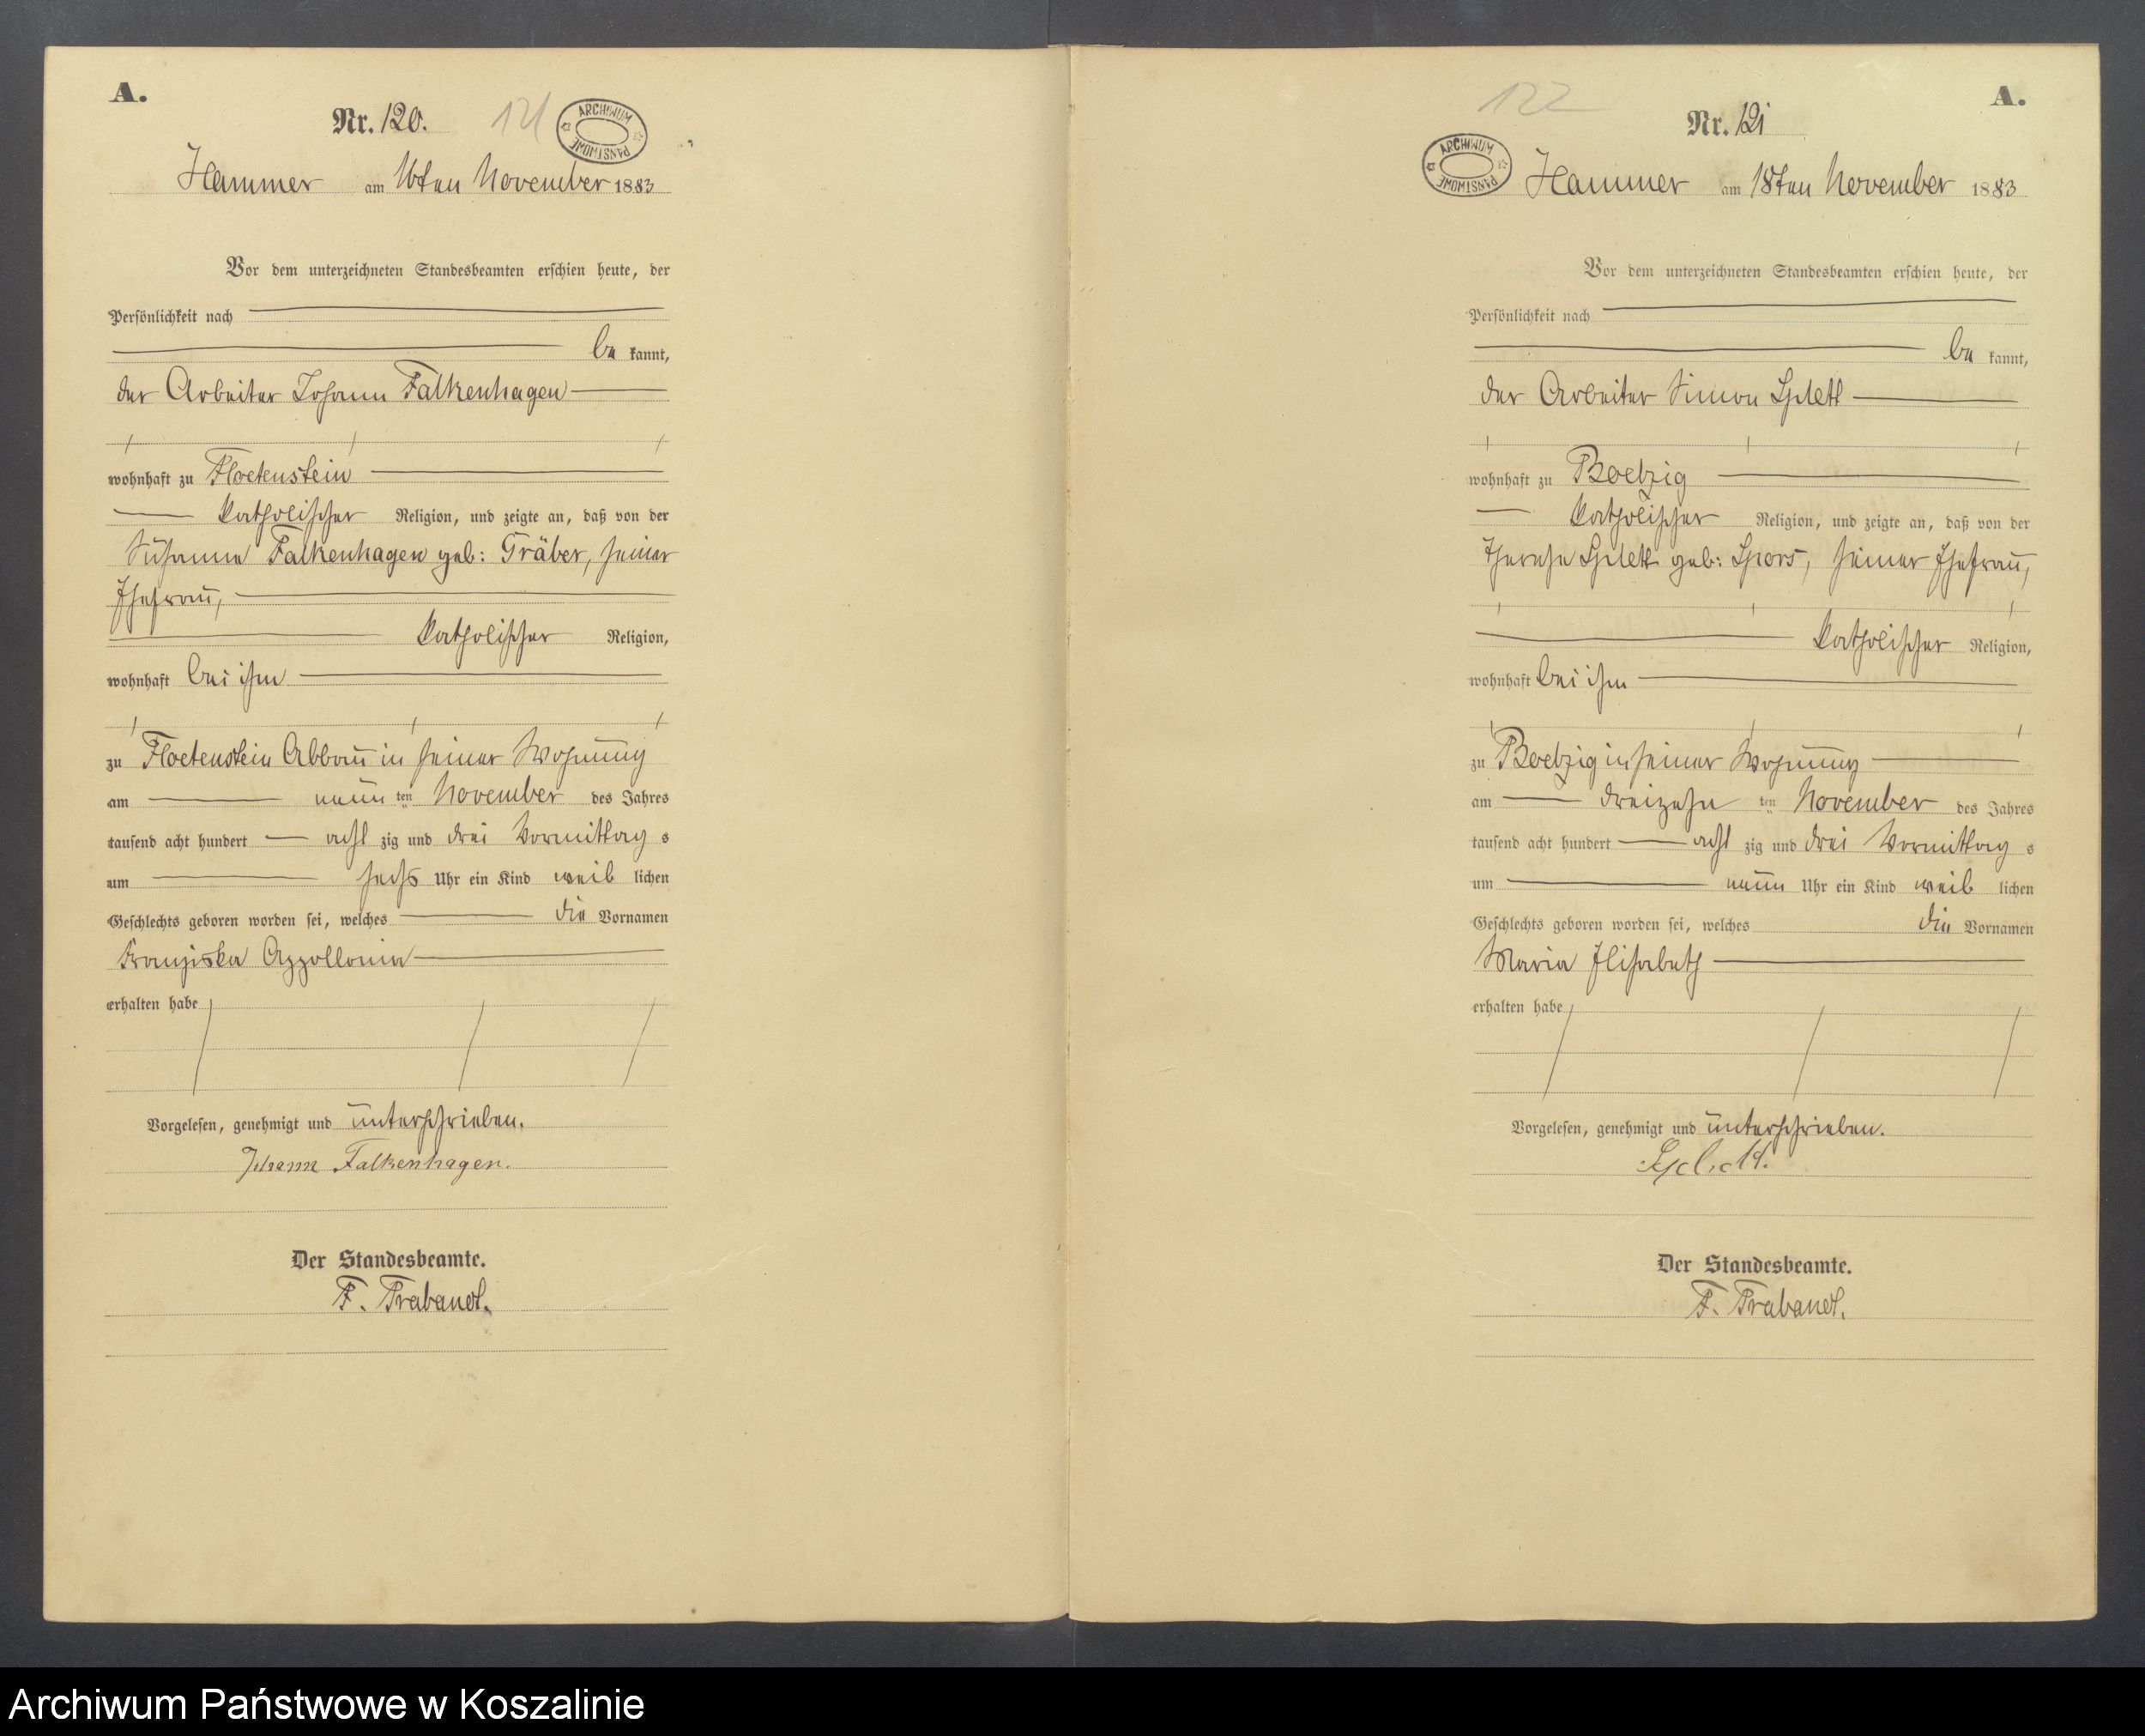 A.
Nr. 120.
121
ARCHIWUM PAŃSTWOWE
Hammer am 16ten November 1883
Vor dem unterzeichneten Standesbeamten erschien heute, der
Persönlichkeit nach
be kannt,
der Arbeiter Johann Falkenhagen
wohnhaft zu Floetenstein
katholischer Religion, und zeigte an, daß von der
Susanna Falkenhagen geb: Gräber, seiner
Ehefrau,
katholischer Religion,
wohnhaft bei ihm
zu Floetenstein Abbau in seiner Wohnung
am neun ten November des Jahres
tausend acht hundert acht zig und drei Vormittag s
um sechs Uhr ein Kind weib lichen
Geschlechts geboren worden sei, welches die Vornamen
Franziska Appollonia
erhalten habe
Vorgelesen, genehmigt und unterschrieben.
Johann Falkenhagen.
Der Standesbeamte.
F. Trabandt.
A.
122
Nr. 121
ARCHIWUM PAŃSTWOWE
Hammer am 18ten November 1883
Vor dem unterzeichneten Standesbeamten erschien heute, der
Persönlichkeit nach
be kannt,
der Arbeiter Simon Splett
wohnhaft zu Boelzig
katholischer Religion, und zeigte an, daß von der
Therese Splett geb: Spors, seiner Ehefrau,
katholischer Religion,
wohnhaft bei ihm
zu Boelzig in seiner Wohnung
am dreizehn ten November des Jahres
tausend acht hundert acht zig und drei Vormittag s
um neun Uhr ein Kind weib lichen
Geschlechts geboren worden sei, welches die Vornamen
Maria Elisabeth
erhalten habe
Vorgelesen, genehmigt und unterschrieben.
Splett.
Der Standesbeamte.
F. Trabandt.
Archiwum Państwowe w Koszalinie